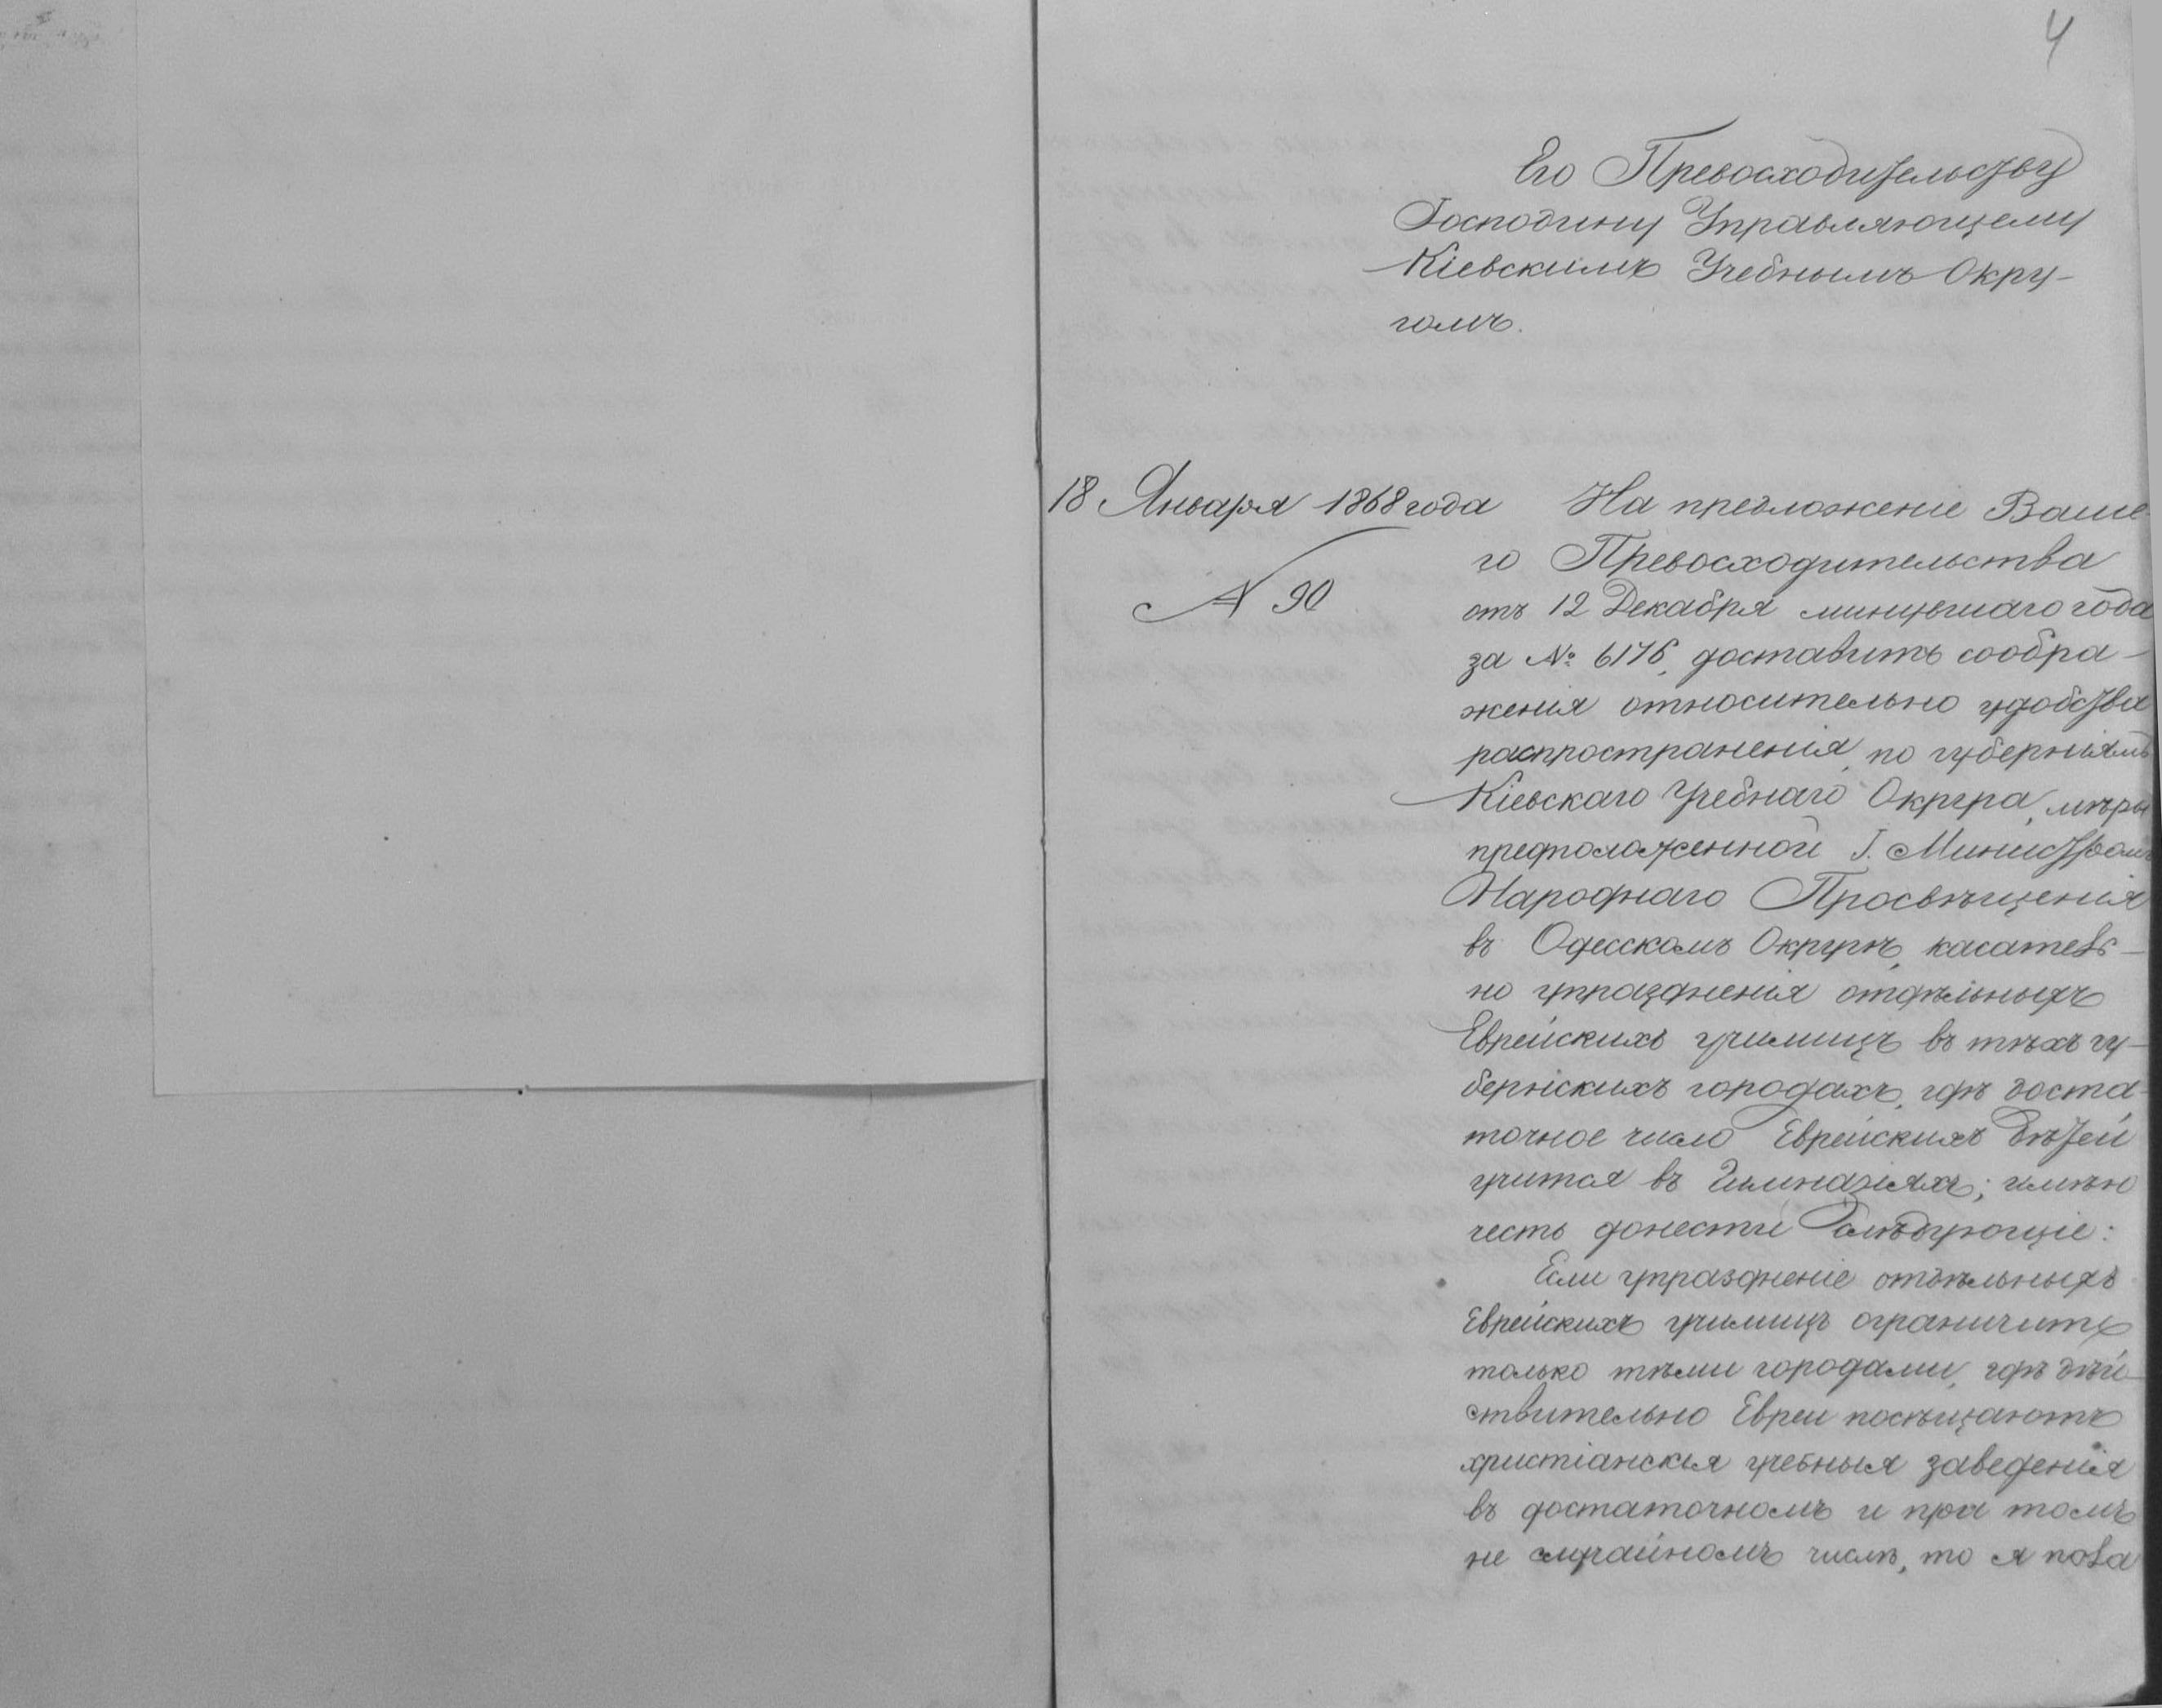 4
Его Превосходительству
Господину Управляющему
Кіевскимъ Учебнымъ Окру-
гомъ.
18 Января 1868 года
№ 90
На предложеніе Ваше-
го Превосходительства
отъ 12 Декабря минувшаго года
за № 6176, доставить сообра-
женія относительно удобства
распространенія, по губерніямъ
Кіевскаго Учебнаго Округа, мѣры
предположенной Г. Министромъ
Народнаго Просвѣщенія
въ Одесскомъ Округѣ, касатель-
но упраздненія отдѣльныхъ
Еврейскихъ училищъ въ тѣхъ гу-
бернскихъ городахъ, гдѣ доста-
точное число Еврейскихъ дѣтей
учится въ Гимназіяхъ; имѣю
честь донести слѣдующіе:
Если упраздненіе отдѣльныхъ
Еврейскихъ училищъ ограничить
только тѣми городами, гдѣ дѣй-
ствительно Евреи посѣщаютъ
христіанскія учебныя заведенія
въ достаточномъ и при томъ
не случайномъ числѣ, то я пола